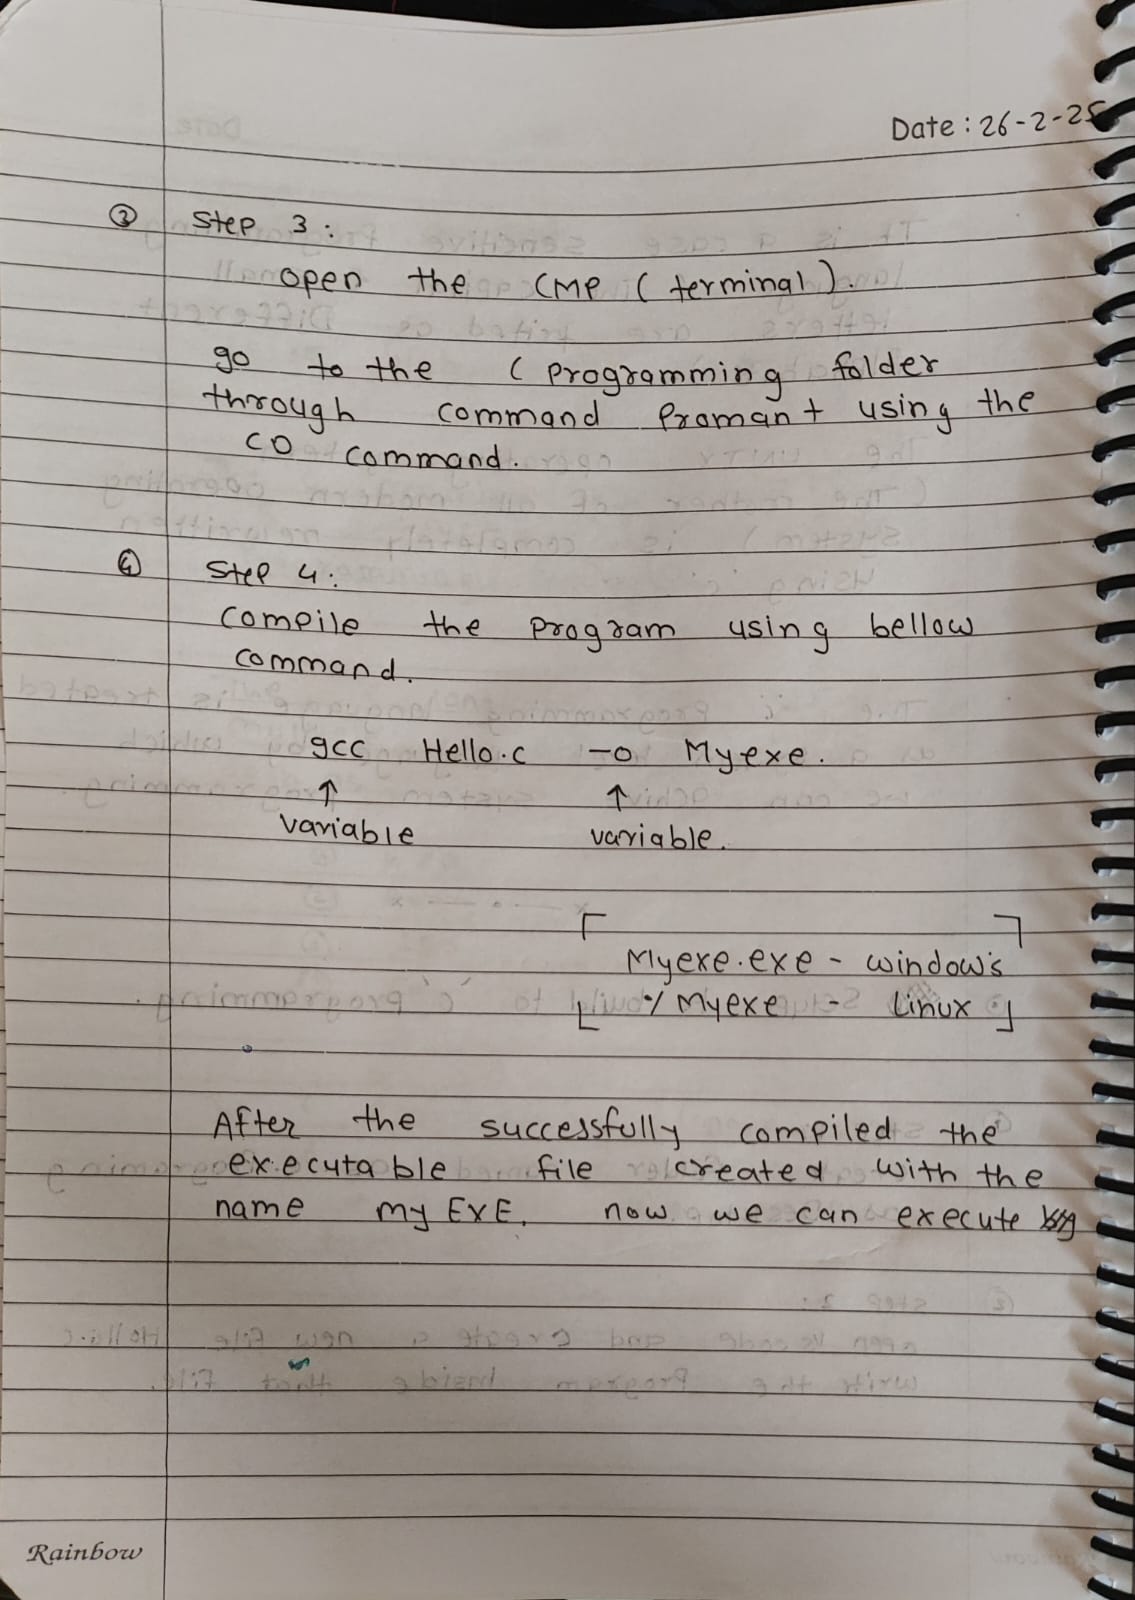 Date : 26-2-25
③ Step 3 :
open the CMP ( terminal ).
go to the ( programming folder
through command Promant using the
CD command.
④ Step 4 :
compile the program using bellow
command.
gcc Hello.c -o Myexe.
↑ ↑
variable variable.
Myexe.exe - window's
./ Myexe - Linux
After the successfully compiled the
executable file created with the
name my EXE. now we can execute
Rainbow